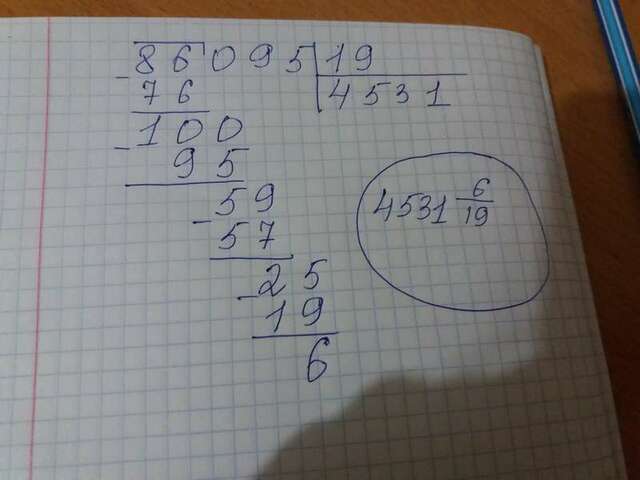 86095 19
76 4531
100
95
59
57
25
19
6
4531 6/19